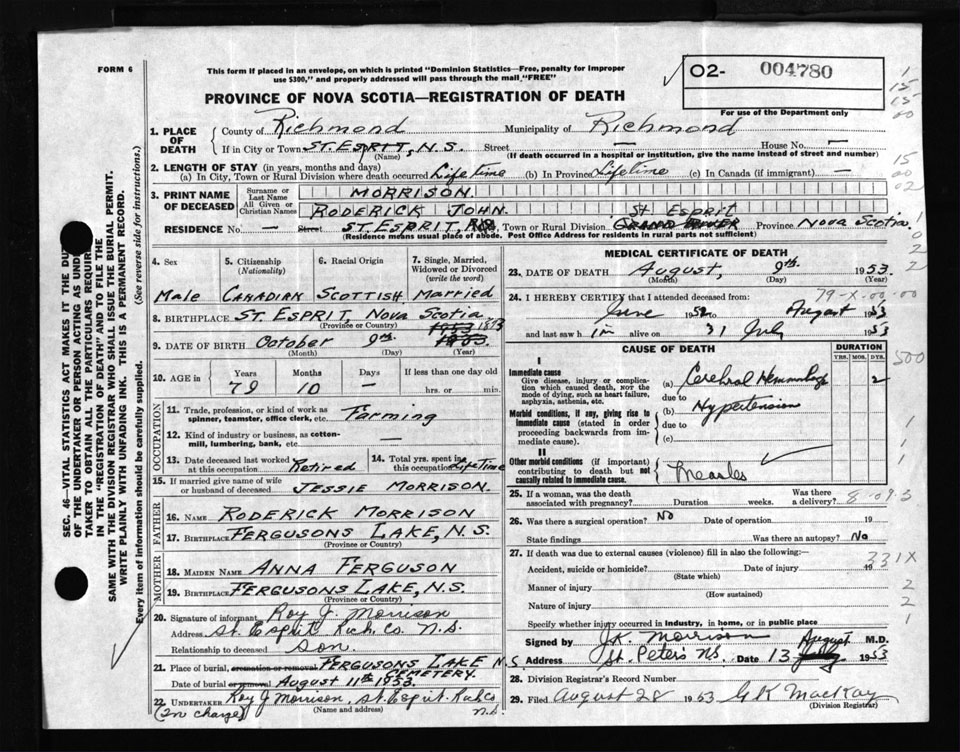 FORM 6
This form if placed in an envelope, on which is printed "Dominion Statistics—Free, penalty for improper
use $300," and properly addressed will pass through the mail "FREE"
O2- 004780
For use of the Department only
PROVINCE OF NOVA SCOTIA—REGISTRATION OF DEATH
1. PLACE OF DEATH
County of Richmond Municipality of Richmond
If in City or Town ST. ESPRIT, N.S. Street — House No. —
(Name) (If death occurred in a hospital or institution, give the name instead of street and number)
2. LENGTH OF STAY (in years, months and days)
(a) In City, Town or Rural Division where death occurred Life Time (b) In Province Lifetime (c) In Canada (if immigrant) —
3. PRINT NAME OF DECEASED
Surname or Last Name MORRISON.
All Given or Christian Names RODERICK JOHN.
St Esprit
RESIDENCE No. — Street ST. ESPRIT, Town or Rural Division GRAND RIVER Province Nova Scotia
(Residence means usual place of abode. Post Office Address for residents in rural parts not sufficient)
4. Sex
5. Citizenship (Nationality)
6. Racial Origin
7. Single, Married, Widowed or Divorced (write the word)
Male CANADIAN SCOTTISH Married
8. BIRTHPLACE ST. ESPRIT, Nova Scotia
(Province or Country)
1873
9. DATE OF BIRTH October 9th.
(Month) (Day) (Year)
10. AGE in
Years Months Days If less than one day old
79 10 — hrs. or min.
OCCUPATION
11. Trade, profession, or kind of work as spinner, teamster, office clerk, etc. Farming
12. Kind of industry or business, as cotton-mill, lumbering, bank, etc. —
13. Date deceased last worked at this occupation Retired
14. Total yrs. spent in this occupation Life Time
15. If married give name of wife or husband of deceased JESSIE MORRISON.
FATHER
16. NAME RODERICK MORRISON
17. BIRTHPLACE FERGUSONS LAKE, N.S.
(Province or Country)
MOTHER
18. MAIDEN NAME ANNA FERGUSON
19. BIRTHPLACE FERGUSONS LAKE, N.S.
(Province or Country)
20. Signature of informant Roy J. Morrison
Address St. Esprit Rich. Co. N.S.
Relationship to deceased Son.
21. Place of burial, cremation or removal FERGUSONS LAKE N.S.
CEMETERY.
Date of burial or removal AUGUST 11th 1953.
22. UNDERTAKER Roy J Morrison, St. Esprit. Rich Co N.S.
(In charge) (Name and address)
MEDICAL CERTIFICATE OF DEATH
23. DATE OF DEATH August, 9th. 1953.
(Month) (Day) (Year)
24. I HEREBY CERTIFY that I attended deceased from:
79-X-00-00
June 1952 to August 1953
and last saw h im alive on 31 July 1953
CAUSE OF DEATH DURATION
YRS. MOS. DYS.
I
Immediate cause
Give disease, injury or complication which caused death, not the mode of dying, such as heart failure, asphyxia, asthenia, etc.
(a) Cerebral Hemorrhage 2
due to
Morbid conditions, if any, giving rise to immediate cause (stated in order proceeding backwards from immediate cause).
(b) Hypertension
due to
(c)
II
Other morbid conditions (if important) contributing to death but not causally related to immediate cause.
Measles
25. If a woman, was the death associated with pregnancy? Duration weeks. Was there a delivery?
8-09-3
26. Was there a surgical operation? No Date of operation 19
State findings Was there an autopsy? No
27. If death was due to external causes (violence) fill in also the following:—
Accident, suicide or homicide? Date of injury 19
(State which)
331X
Manner of injury
(How sustained)
Nature of injury
Specify whether injury occurred in industry, in home, or in public place
Signed by J.K. Morrison M.D.
Address St. Peters NS. Date 13 August 1953
28. Division Registrar's Record Number
29. Filed August 28 1953 G K MacKay
(Division Registrar)
SEC. 46—VITAL STATISTICS ACT MAKES IT THE DUTY
OF THE UNDERTAKER OR PERSON ACTING AS UNDER-
TAKER TO OBTAIN ALL THE PARTICULARS REQUIRED
IN THE "REGISTRATION OF DEATH" AND TO FILE THE
SAME WITH THE DIVISION REGISTRAR WHO SHALL ISSUE THE BURIAL PERMIT.
WRITE PLAINLY WITH UNFADING INK. THIS IS A PERMANENT RECORD.
Every item of information should be carefully supplied. (See reverse side for instructions.)
1
15
15
00
15
00
02
1
0
2
2
500
1
1
2
2
1